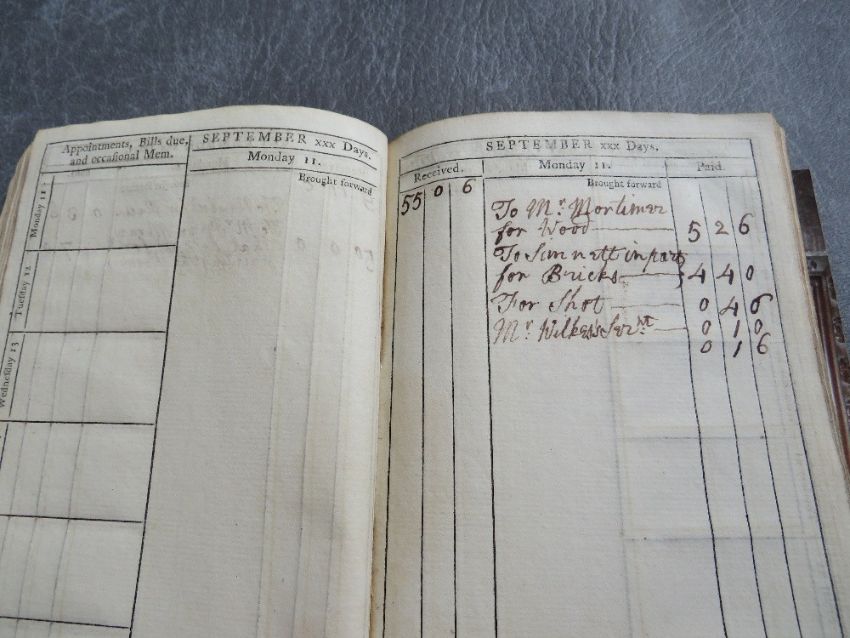 Appointments, Bills due,
and occasional Mem.
SEPTEMBER xxx Days.
Monday 11.
Brought forward
Monday 11
Tuesday 12
Wednesday 13
SEPTEMBER xxx Days.
Received. Monday 11. Paid.
Brought forward
55 0 6
To Mr. Mortimer
for Wood 5 2 6
To in part
for Bricks 4 4 0
For Shot 0 4 6
Mr. Servt. 0 1 0
0 1 6